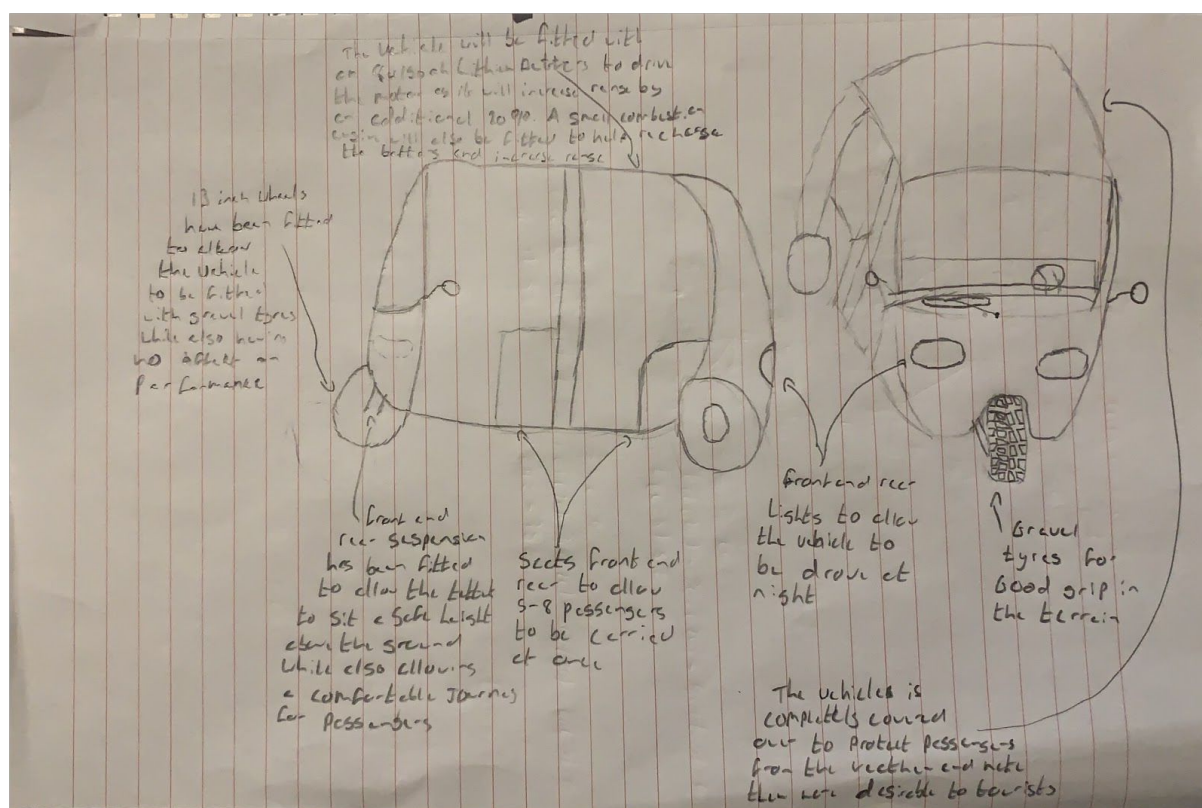 The vehicle will be fitted with
an Lithium to drive
the motor as it will increase range by
an additional 20%. A small combustion
will also be fitted to help recharge
the and increase range
13 inch wheels
have been fitted
to allow
the vehicle
to be fitted
with gravel tyres
while also having
no affect on
Performance
front and
rear suspension
has been fitted
to allow the
to sit a safe height
above the ground
while also allowing
a comfortable Journey
for passengers
Seats front and
rear to allow
5-8 passengers
to be carried
at once
front and rear
Lights to allow
the vehicle to
be drove at
night
Gravel
tyres for
Good grip in
the terrain
The vehicles is
completely covered
over to Protect passengers
from the weather and make
them more desirable to tourists